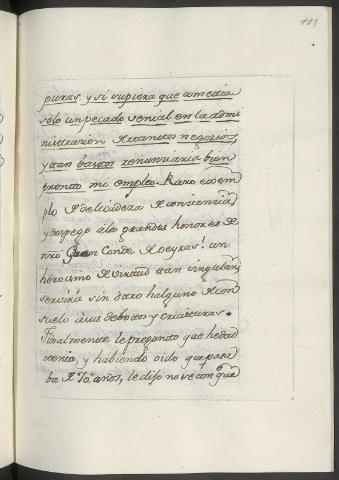 169
puras, y si supiera que cometia
sólo un pecado venial en la admi
nistrazion de tantos negocios,
y tan bastos renunziaria bien
pronto mi empleo. Raro exem
plo de delicadeza de conciencia,
y despego a los grandes honores de
nro Gran Conde de Oeyras! un
heroismo de virtud tan singular,
servirá sin daro halguno de con
suelo à sus debotos y criaturas.
Finalmente le pregunto que hedad
tenia, y habiendo oido que pasa
ba de 70. años, le dijo no ve con que